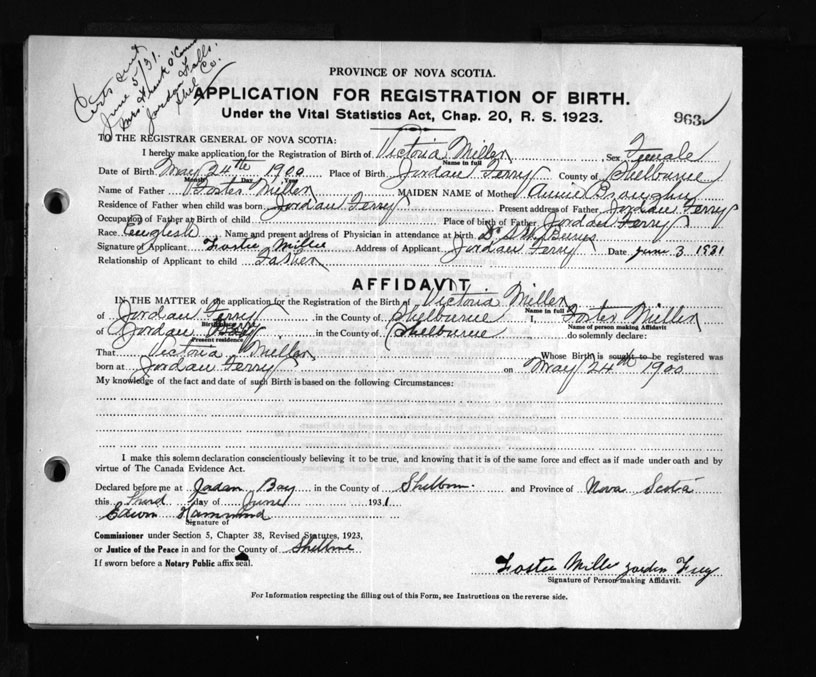 Certs sent
June 5/31.
Mrs. Frank O'Connor
Jordan Falls.
Shel. Co.
PROVINCE OF NOVA SCOTIA.
APPLICATION FOR REGISTRATION OF BIRTH.
Under the Vital Statistics Act, Chap. 20, R. S. 1923.
963
TO THE REGISTRAR GENERAL OF NOVA SCOTIA:
I hereby make application for the Registration of Birth of Victoria Miller Sex Female
Name in full
Date of Birth May 24th 1900 Place of Birth Jordan Ferry County of Shelburne
Month Day Year
Name of Father Foster Miller MAIDEN NAME of Mother Annie
Residence of Father when child was born Jordan Ferry Present address of Father Jordan Ferry
Occupation of Father at Birth of child Place of birth of Father Jordan Ferry
Race English Name and present address of Physician in attendance at birth Dr
Signature of Applicant Foster Miller Address of Applicant Jordan Ferry Date June 3 1931
Relationship of Applicant to child Father
AFFIDAVIT
IN THE MATTER of the application for the Registration of the Birth of Victoria Miller
Name in full
of Jordan Ferry in the County of Shelburne I, Foster Miller
Birthplace Name of person making Affidavit
of Jordan Bay in the County of Shelburne do solemnly declare:
Present residence
That Victoria Miller Whose Birth is sought to be registered was
born at Jordan Ferry on May 24th 1900
My knowledge of the fact and date of such Birth is based on the following Circumstances:
I make this solemn declaration conscientiously believing it to be true, and knowing that it is of the same force and effect as if made under oath and by
virtue of The Canada Evidence Act.
Declared before me at Jordan Bay in the County of Shelburne and Province of Nova Scotia
this Third day of June 1931
Edwin Hammond
Signature of
Commissioner under Section 5, Chapter 38, Revised Statutes, 1923,
or Justice of the Peace in and for the County of Shelburne
If sworn before a Notary Public affix seal.
Foster Miller Jordan Ferry
Signature of Person making Affidavit.
For Information respecting the filling out of this Form, see Instructions on the reverse side.